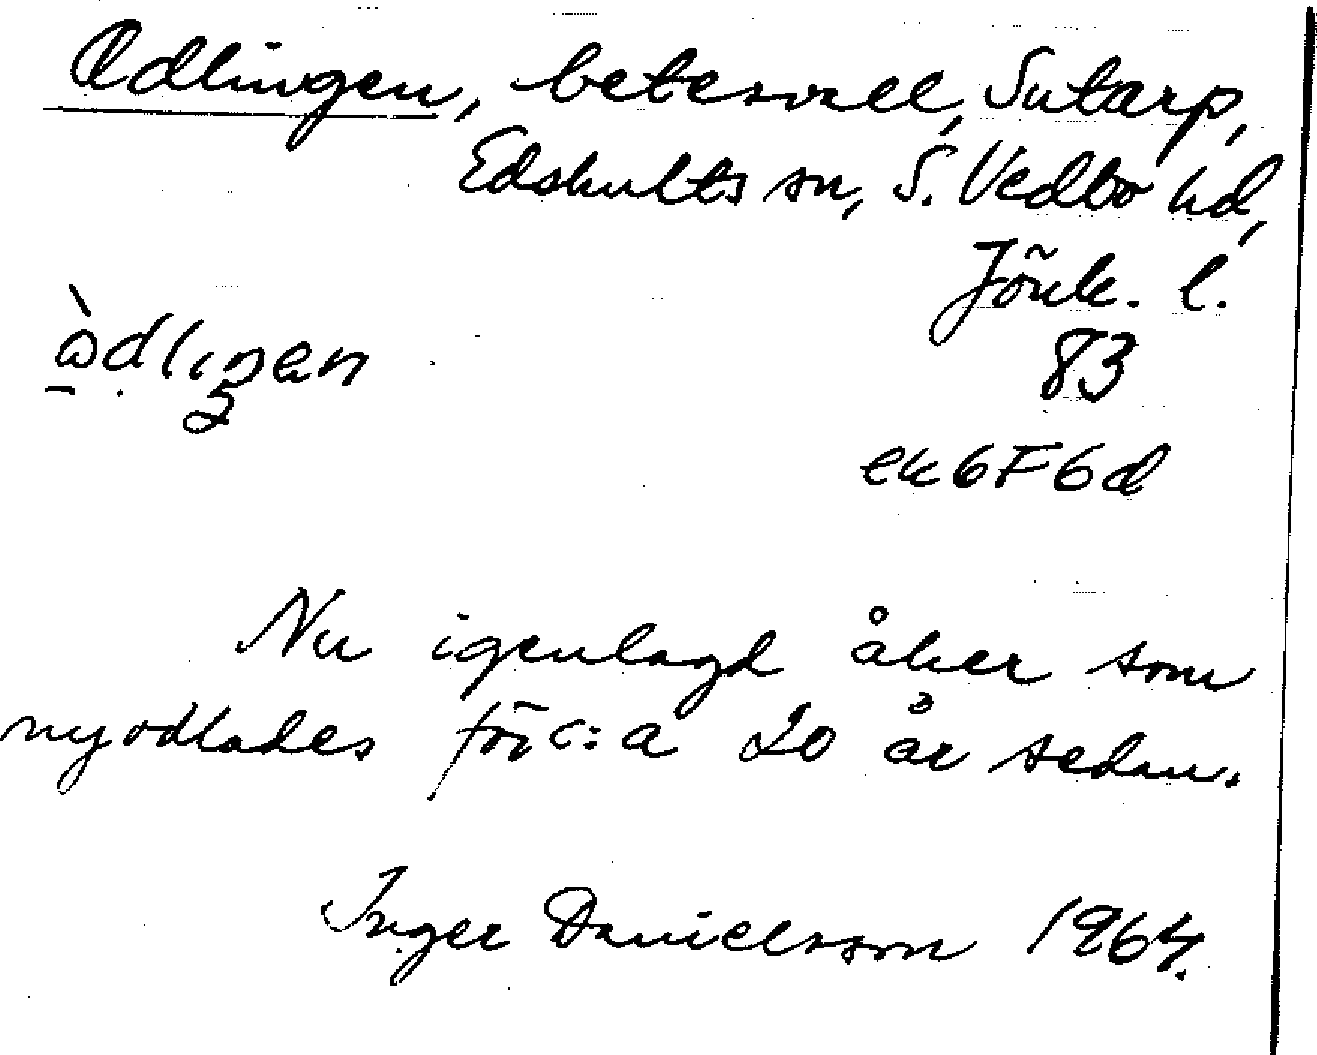 Odlingen, betesvall, Sutarp,
Edshults sn, S. Vedbo hd,
Jönk. l.
83
ek 6F6d
Nu igenlagd åker som
nyodlades för c:a 20 år sedan.
Inger Danielsson 1964.